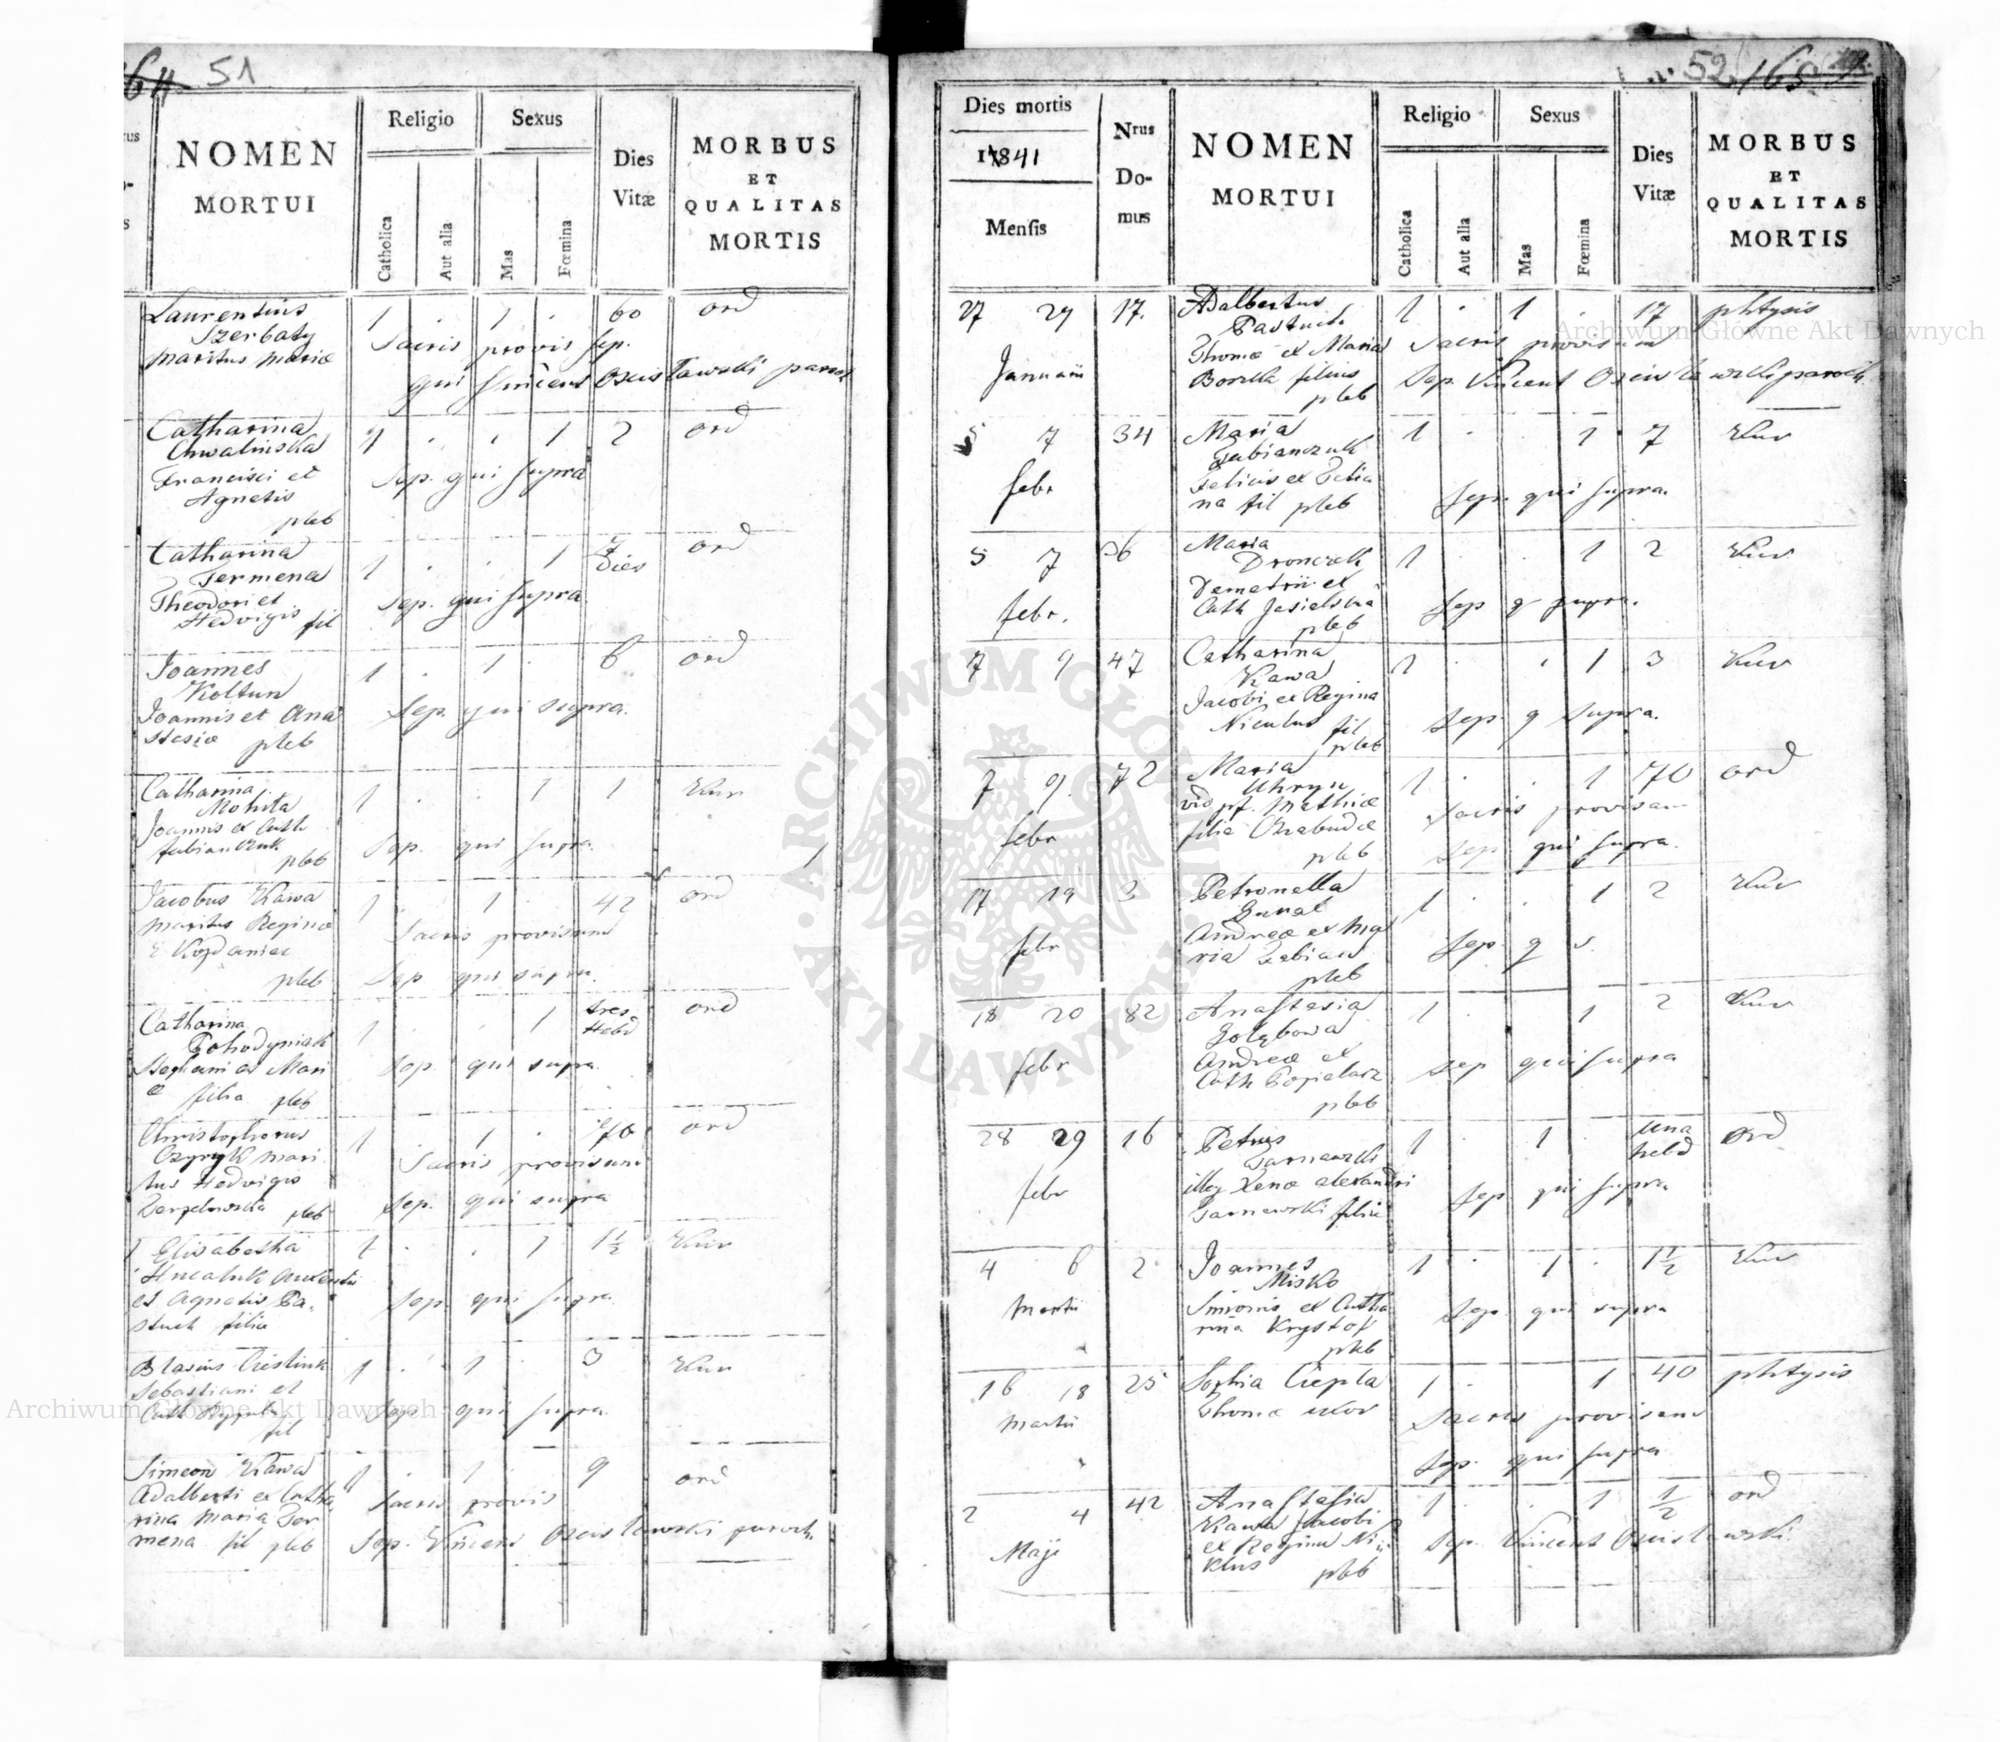 51
NOMEN
MORTUI
Religio
Catholica
Aut alia
Sexus
Mas
Fœmina
Dies
Vitæ
MORBUS
ET
QUALITAS
MORTIS
Laurentius
Szerbaty
maritus mariæ
1 . 1 . 60 ord
Sacris provis sep.
qui Vincens Oscislawski paroch
Catharina
Chwalinska
Francisci et
Agnetis
pleb
1 . . 1 2 ord
Sep. qui supra
Catharina
Termena
Theodori et
Hedvigis fil
1 . . 1 7 Dies ord
Sep. qui supra
Joannes
Koltun
Joannis et Ana
stasiæ pleb
1 . 1 . 6 ord
Sep. qui supra.
Catharina
Mohita
Joannis et Cath
Fabianczuk
pleb
1 . . 1 1
Sep. qui supra.
Jacobus Kawa
maritus Reginæ
pleb
1 . 1 . 42 ord
Sacris provisum
Sep. qui supra.
Catharina
Pohodyniak
Stephani et Mari
æ filia pleb
1 . . 1 tres Hebd ord
Sep. qui supra.
Christophorus
Czyryk mari
tus Hedvigis
pleb
1 . 1 . 70 ord
Sacris provisum
Sep. qui supra
Elisabetha
et Agnetis Pa-
stuch filia
1 . . 1 1½
Sep. qui supra
Blasius
Sebastiani et
fil
1 . 1 . 3
Sep. qui supra.
Simeon Kawa
Adalberti et Catha
rina Maria Ter
mena fil pleb
1 . 1 . 9 ord
Sacris provis
Sep. Vincens Oscislawski paroch.
52
165
Dies mortis
1841
Mensis
Nrus
Do-
mus
NOMEN
MORTUI
Religio
Catholica
Aut alia
Sexus
Mas
Fœmina
Dies
Vitæ
MORBUS
ET
QUALITAS
MORTIS
27 29 17. Adalbertus
Pastuch
Thomæ et Maria
Januarii
filius
pleb
1 . 1 . 17 phtysis
Sacris provisum
Sep. Vincent Oscislawski paroch.
5 7 34 Maria
Fabianczuk
febr
Felicis et Felicia
na fil pleb
1 . . 1 7
Sep. qui supra.
5 7 36 Maria
Dronczek
Demetrii et
febr.
Cath Jasielska
pleb
1 . . 1 2
Sep q supra.
7 9 47 Catharina
Kawa
Jacobi et Regina
Niculus fil
pleb
1 . . 1 3
Sep. q supra.
7 9. 72 Maria
Uhryn
vid pf. Mathiæ
febr
filia
pleb
1 . . 1 70 ord
Sacris provisam
Sep qui supra.
17 19 3 Petronella
Gural
Andreæ et Ma
febr
ria Fabian
pleb
1 . . 1 2
Sep. q s.
18 20 82 Anastasia
Golębowa
Andreæ et
febr
Cath Popielarz
pleb
1 . . 1 2
Sep qui supra
28 29 16 Petrus
Tarnawski
illeg Xenæ alexandri
febr
Tarnawski filiæ
1 . 1 . una hebd ord
Sep qui supra
4 6 2 Joannes
Misko
Simonis et Catha
martii
rina Krystof
pleb
1 . 1 . 1½
Sep. qui supra
16 18 25 Sophia Ciepla
Thomæ uxor
martii
1 . . 1 40 phtysis
Sacris provisam
Sep. qui supra
2 4 42 Anastasia
Kawa Jacobi
et Regina Ni
Maji
klus pleb
1 . . 1 ½ ord
Sep. Vincent Oscislawski.
Archiwum Główne Akt Dawnych
Archiwum Główne Akt Dawnych
ARCHIWUM GŁÓWNE AKT DAWNYCH